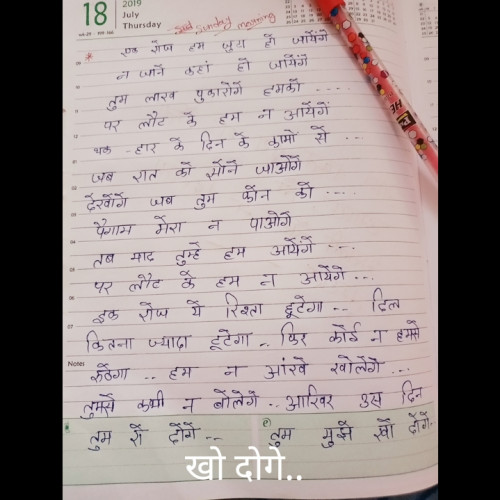 18
2019
July
Thursday
Sad Sunday morning
* एक रोज हम जुदा हो जायेंगे
न जाने कहां हो जायेंगे
तुम लाख पुकारोगें हमको ....
पर लौट के हम न आयेंगें
थक - हार के दिन के कामो से ...
जब रात को सोने जाओगें
देखोगें जब तुम फोन को ....
पैगाम मेरा न पाओगे
तब याद तुम्हे हम आयेंगे ....
पर लौट के हम न आयेंगे ...
इक रोज ये रिश्ता टूटेगा .. दिल
कितना ज्यादा टूटेगा .. फिर कोई न हमसे
Notes
रुठेगा .. हम न आंखे खोलेगें ...
तुमसे कभी न बोलेगे .. आखिर उस दिन
तुम रो दोगे .. तुम मुझे खो दोगे..
खो दोगे..